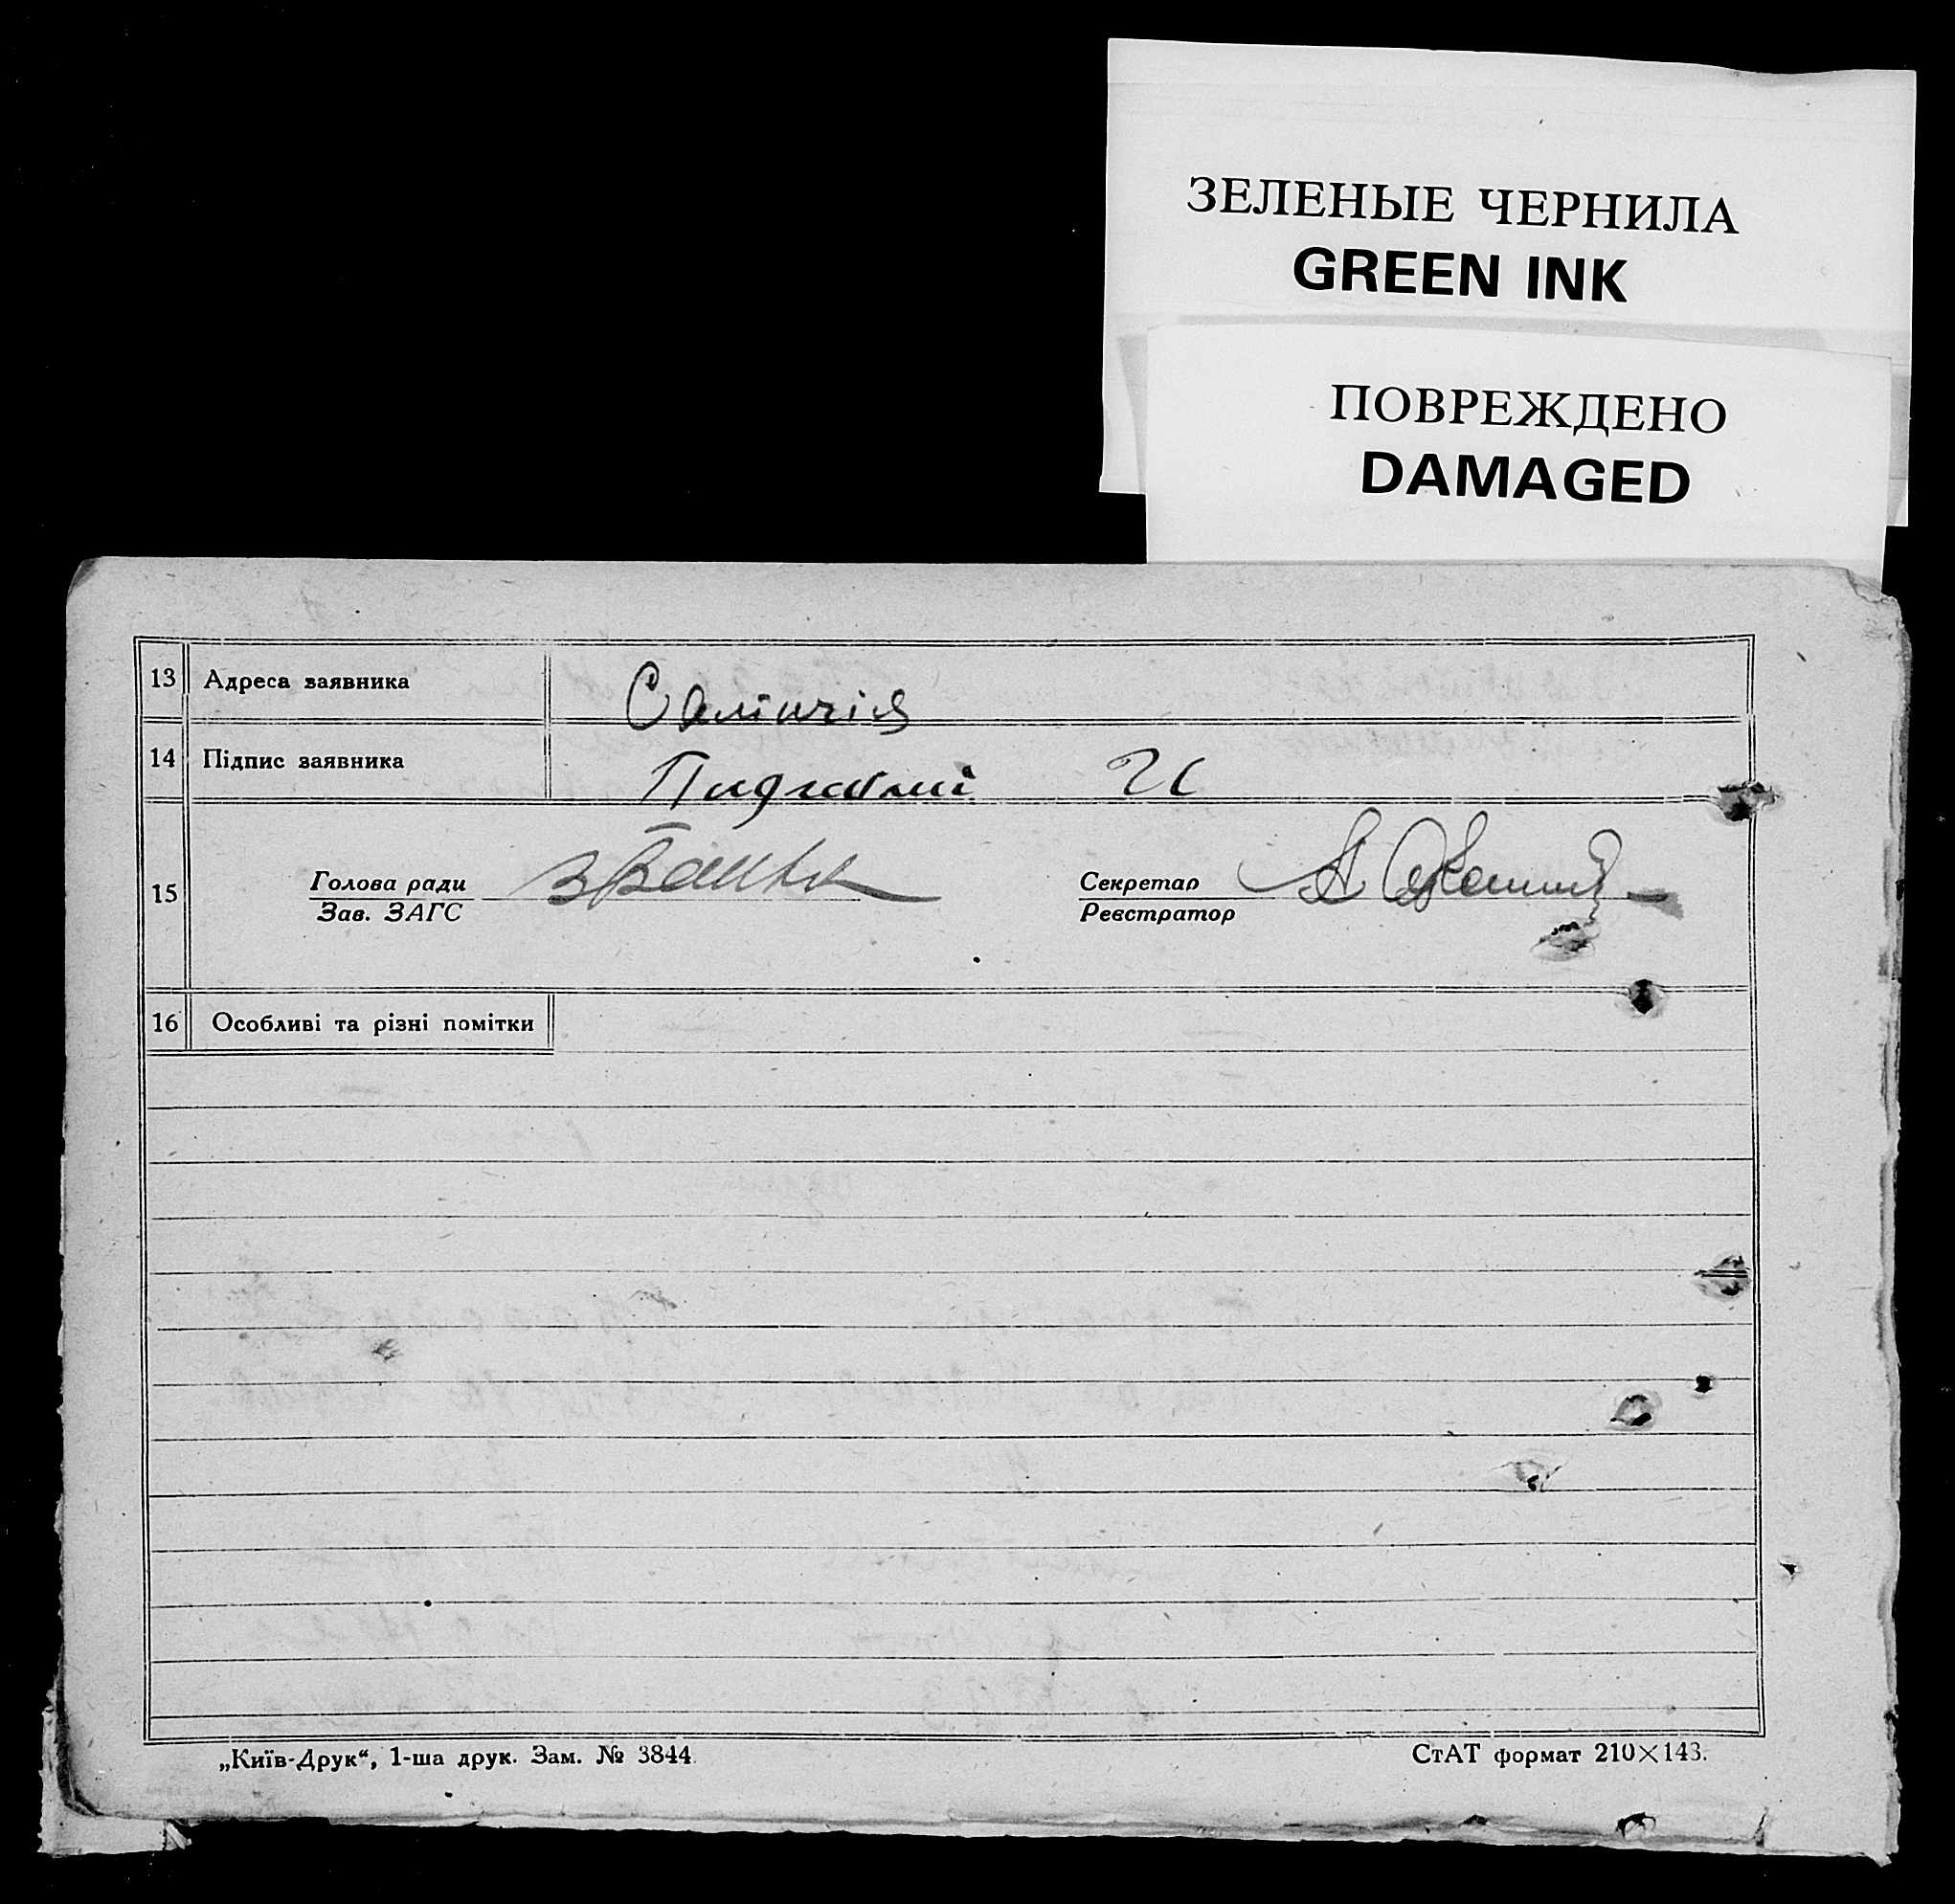 ЗЕЛЕНЫЕ ЧЕРНИЛА
GREEN INK
ПОВРЕЖДЕНО
DAMAGED
13 Адреса заявника
14 Підпис заявника
15 Голова ради Секретар
Зав. ЗАГС Реєстратор
16 Особливі та різні помітки
„Київ-Друк“, 1-ша друк. Зам. № 3844 СтАТ формат 210×143.